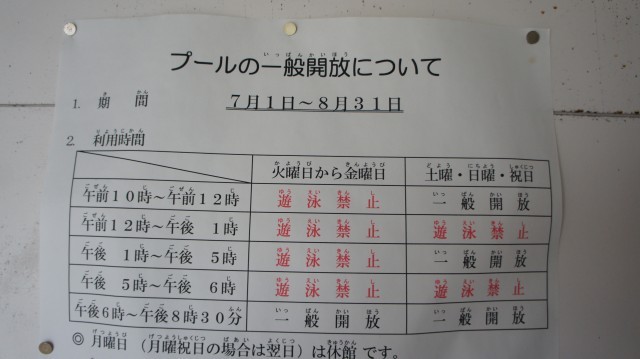 プールの一般開放について
1. 期間 7月1日～8月31日
2. 利用時間
火曜日から金曜日 土曜・日曜・祝日
午前10時～午前12時 遊泳禁止 一般開放
午前12時～午後 1時 遊泳禁止 遊泳禁止
午後 1時～午後 5時 遊泳禁止 一般開放
午後 5時～午後 6時 遊泳禁止 遊泳禁止
午後6時～午後8時30分 一般開放 一般開放
◎ 月曜日（月曜祝日の場合は翌日）は休館です。